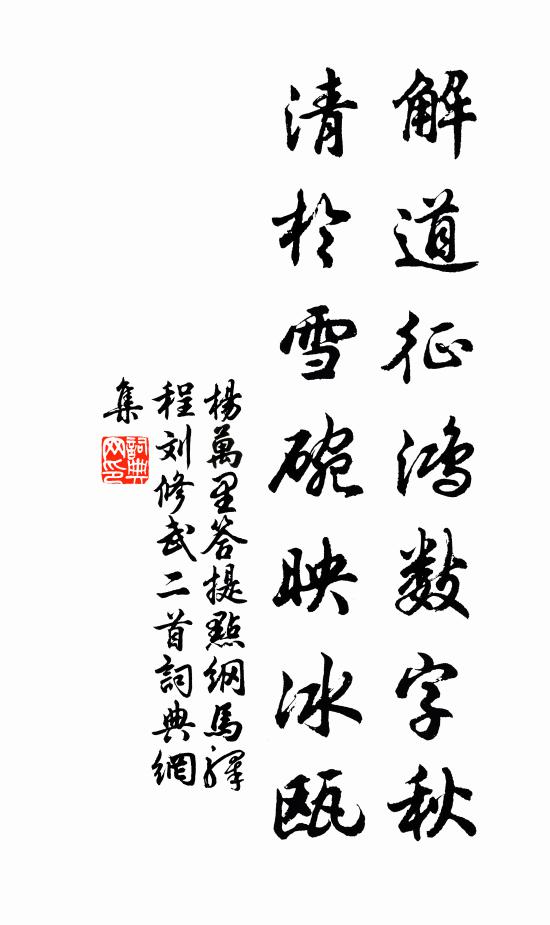 解道征鸿数字秋
清於雪碗映冰瓯
楊萬里答提點綱馬驛
程刘修武二首詞典網
集
詞典网印